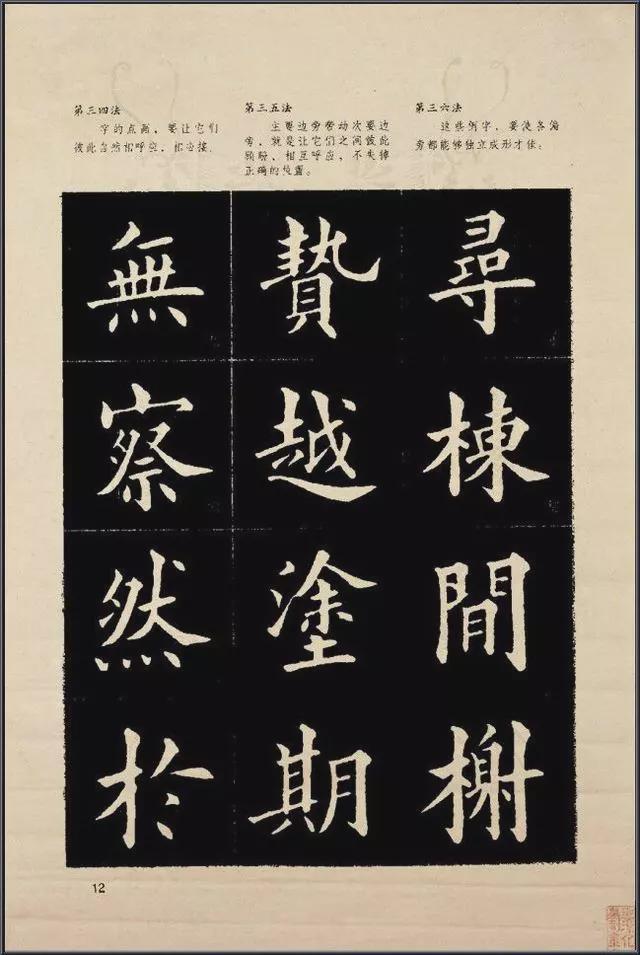 第三四法
字的点画，要让它们
彼此自然相呼应，相迎接。
第三五法
主要边旁带动次要边
旁，就是让它们之间彼此
顾盼、相互呼应，不失掉
正确的位置。
第三六法
这些例字，要使各偏
旁都能够独立成形才佳。
無察然於
贄越塗期
尋棟閒榭
12